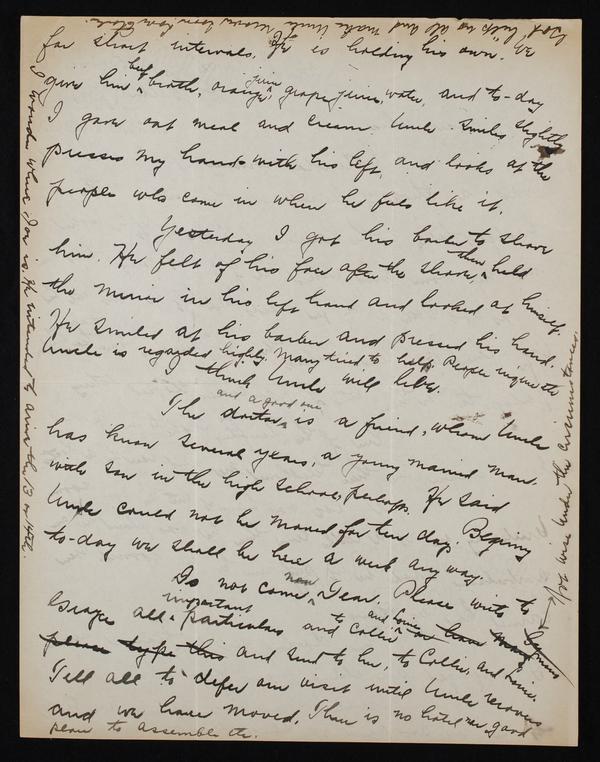 for short intervals. He is holding his own. We
give him beef broth, orange juice, grape juice, water, and to-day
I gave oat meal and cream. Uncle smiles slightly
presses my hand with his left, and looks at the
people who come in when he feels like it.
Yesterday I got his barber to shave
him. He felt of his face after the shave, then held
the mirror in his left hand and looked at himself.
He smiled at his barber and pressed his hand.
Uncle is regarded highly. Many tried to help. People inquire etc
I think Uncle will live.
The doctor, and a good one is a friend, whom Uncle
has know several years, a young married man.
with son in the high school, perhaps. He said
Uncle could not be moved for ten days. Beging
to-day we shall be here a week any way.
Do not come now, Dear. Please write to
Grazes all important particulars and to Collie and Louise
please type this and send to her, to Collie, and Louise.
Tell all to defer our visit until Uncle recovers
and we have moved. There is no hotel near, good
place to assemble etc.
I wonder where Joe is. He intended to arrive the 13 or 14th.
under the circumstances.
God help us all and make Uncle